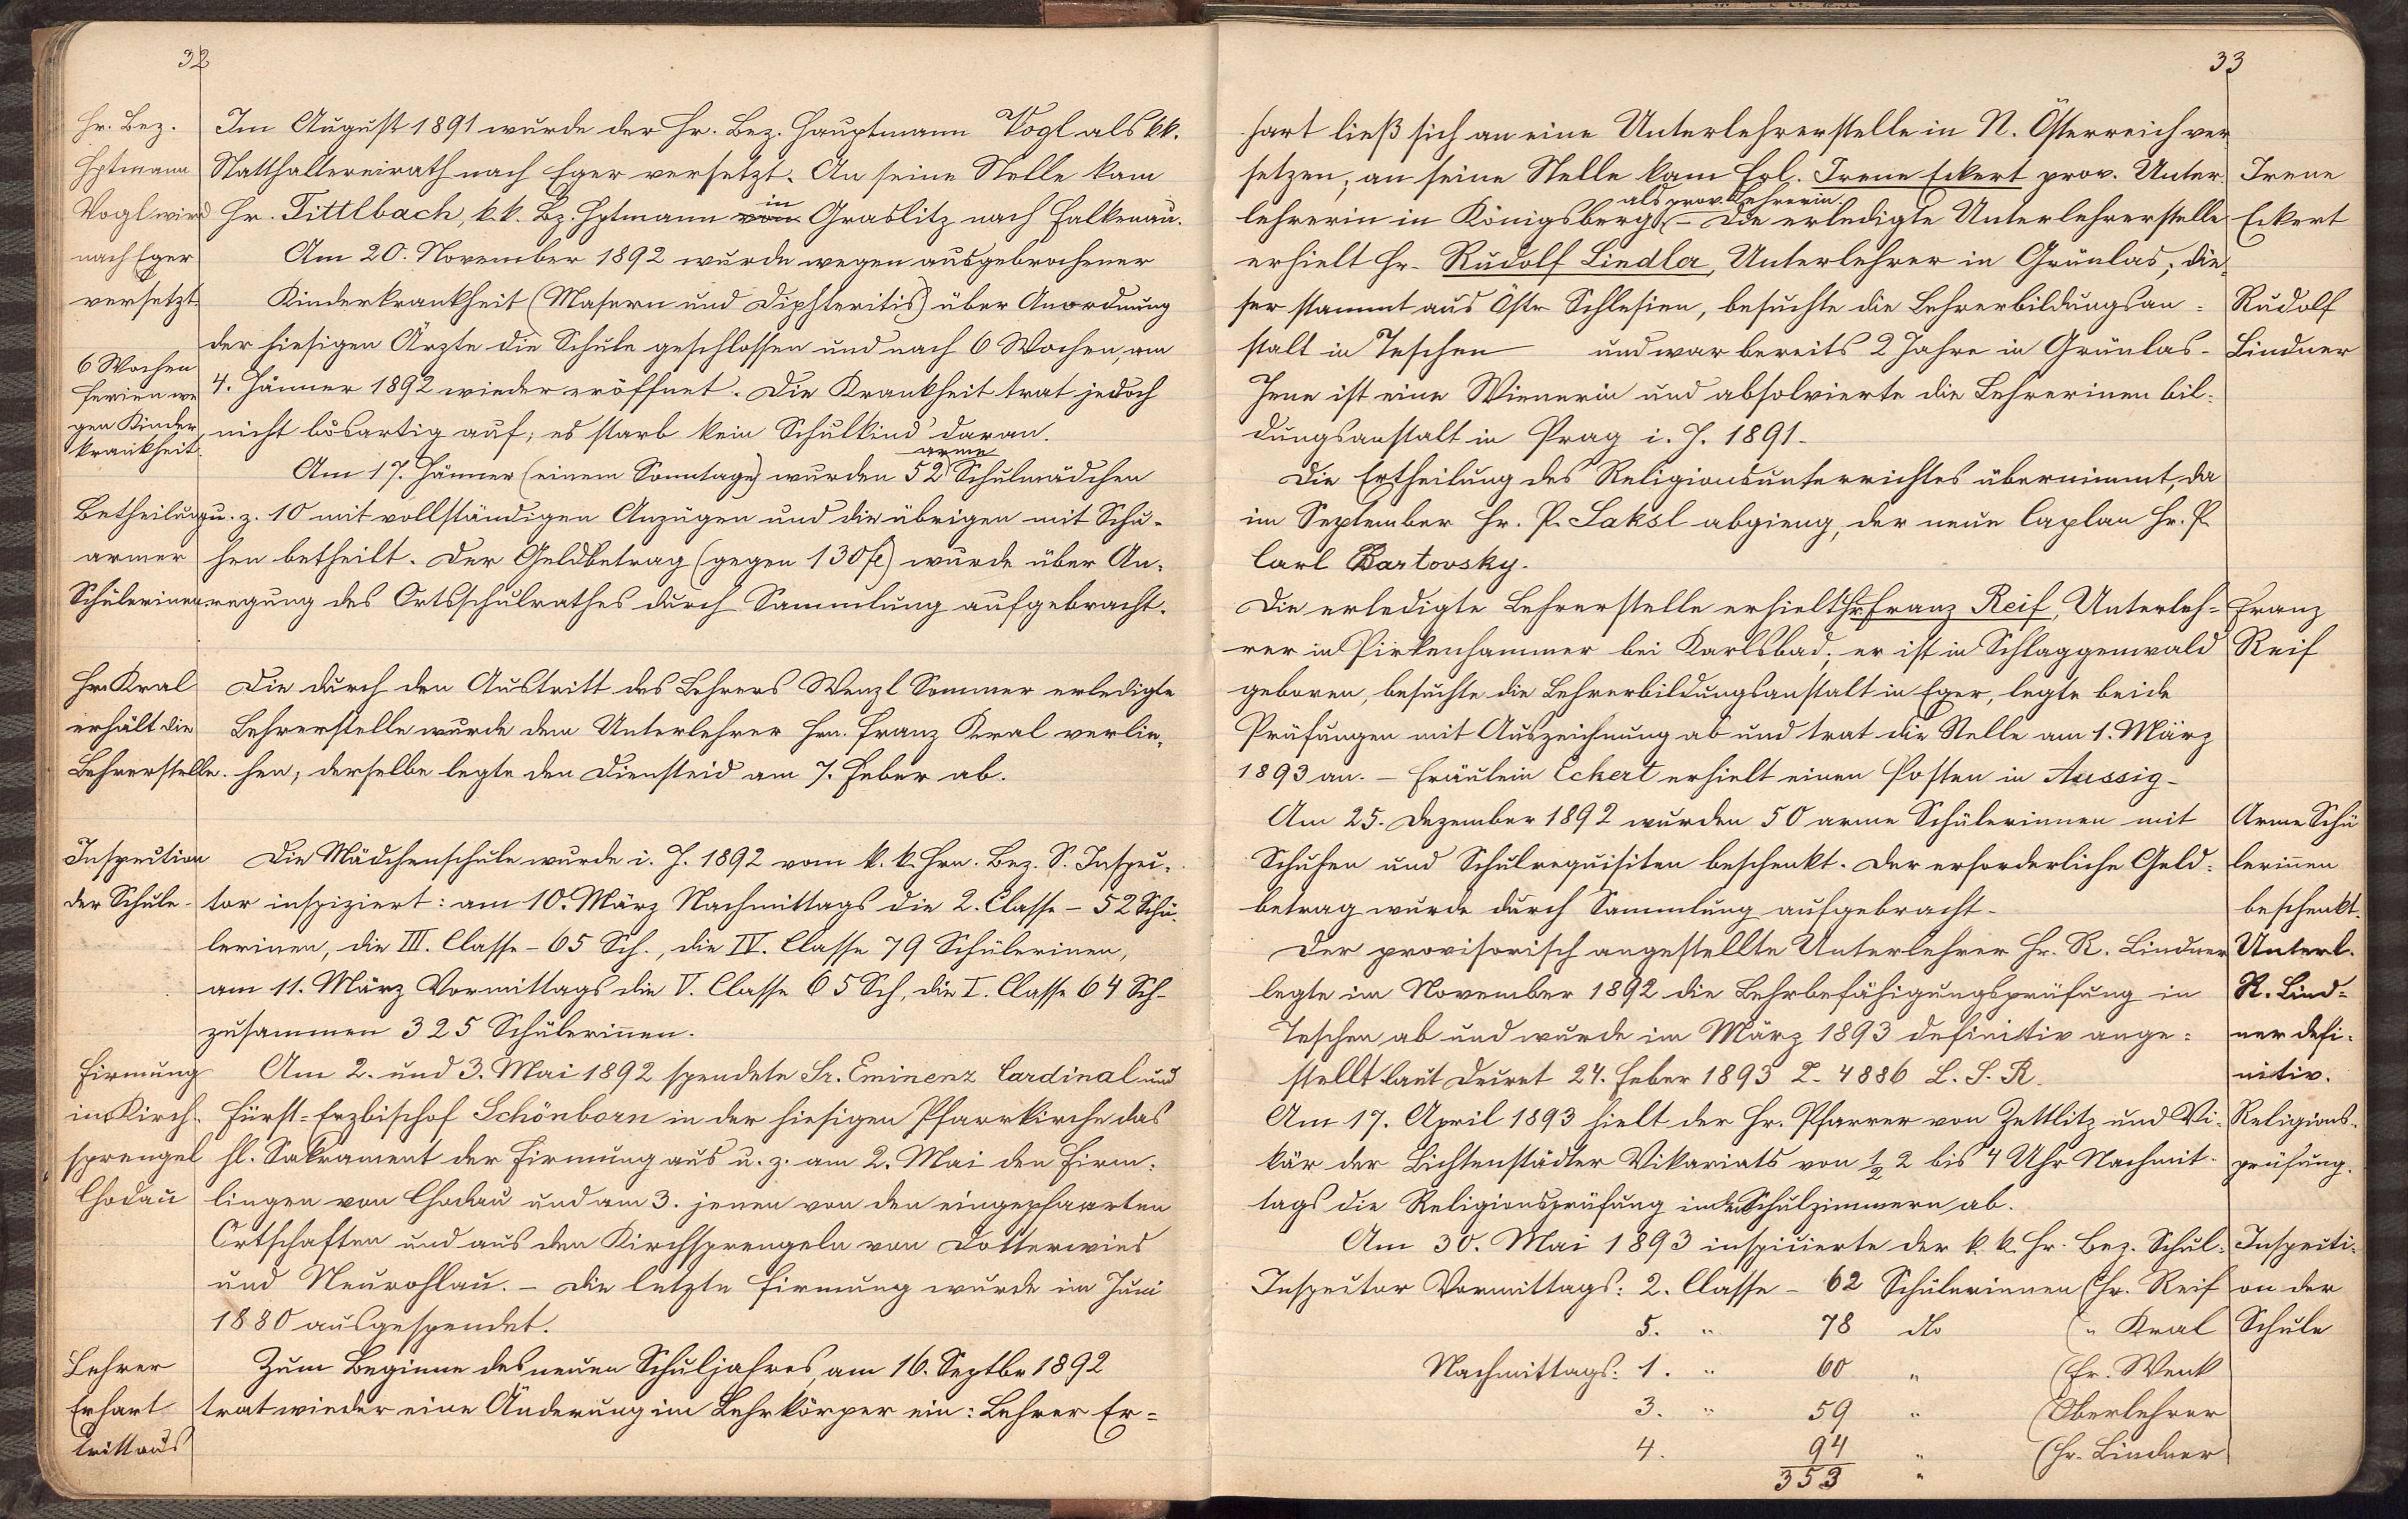 32
Hr. Bez.
Hptmann
Vogl wird
nach Eger
versetzt
Im August 1891 wurde der Hr. Bez. Hauptmann Vogl als kk.
Statthaltereirath nach Eger versetzt. An seine Stelle kam
Hr. Tittlbach, k. k. Bz. Hptmann von in Graslitz nach Falkenau.
Am 20. November 1892 wurde wegen ausgebrochener
Kinderkrankheit (Masern und Diphteritis) über Anordnung
der hiesigen Ärzte die Schule geschlossen und nach 6 Wochen, am
4. Jänner 1892 wieder eröffnet. Die Krankheit trat jedoch
nicht bösartig auf; es starb kein Schulkind daran.
6 Wochen
Ferien we
gen Kinder
krankheit.
Am 17. Jänner (einem Sonntage) wurden 52 arme Schulmädchen
u. z. 10 mit vollständigen Anzügen und die übrigen mit Schu-
hen betheilt. Der Geldbetrag (gegen 130 fl) wurde über An-
regung des Ortsschulrathes durch Sammlung aufgebracht.
Betheilung
armer
Schülerinen
Hr. Kral
erhält die
Lehrerstelle.
Die durch den Austritt des Lehrers Wenzl Sommer erledigte
Lehrerstelle wurde dem Unterlehrer Hrn. Franz Kral verlie-
hen; derselbe legte den Diensteid am 7. Feber ab.
Inspection
der Schule-
Die Mädchenschule wurde i. J. 1892 vom k. k. Hrn. Bez. S. Inspec-
tor inspiziert: am 10. März Nachmittags die 2. Classe - 52 Schü-
lerinen, die III. Classe - 65 Sch., die IV. Classe 79 Schülerinen,
am 11. März Vormittags die V. Classe 65 Sch, die I. Classe 64 Sch-
zusammen 325 Schülerinnen.
Firmung
im Kirch-
sprengel
Chodau
Am 2. und 3. Mai 1892 spendete Sr. Eminenz Cardinal und
Fürst-Erzbischof Schönborn in der hiesigen Pfarrkirche das
hl. Sakrament der Firmung aus u. z. am 2. Mai den Firm-
lingen von Chodau und am 3. jenen von den eingepfarrten
Ortschaften und aus den Kirchsprengeln von Dotterwies
und Neurohlau. - Die letzte Firmung wurde im Juni
1880 ausgespendet.
Lehrer
Erhart
tritt aus
Zum Beginne des neuen Schuljahres, am 16. Septbr 1892
trat wieder eine Änderung im Lehrkörper ein: Lehrer Er-
33
hart ließ sich an eine Unterlehrerstelle in N. Österreich ver
setzen; an seine Stelle kam Frl. Irene Eckert prov. Unter-
lehrerin in Königsberg als prov. Lehrerin. - Die erledigte Unterlehrerstelle
erhielt Hr. Rudolf Lindler, Unterlehrer in Grünlas; die-
ser stammt aus Östr Schlesien, besuchte die Lehrerbildungsan-
stalt in Teschen und war bereits 2 Jahre in Grünlas-
Jene ist eine Wienerin und absolvierte die Lehrerinen bil-
dungsanstalt in Prag i. J. 1891-
Irene
Eckert
Rudolf
Lindner
Die Ertheilung des Religionsunterrichtes übernimmt, da
im September Hr. P. Saksl abgieng, der neue Caplan Hr. P.
Carl Bartovsky.
Die erledigte Lehrerstelle erhielt Hr. Franz Reif, Unterleh-
rer in Pirkenhammer bei Karlsbad; er ist in Schlaggenwald
geboren, besuchte die Lehrerbildungsanstalt in Eger, legte beide
Prüfungen mit Auszeichnung ab und trat die Stelle am 1. März
1893 an. - Fräulein Eckert erhielt einen Posten in Aussig-
Franz
Reif
Am 25. Dezember 1892 wurden 50 arme Schülerinnen mit
Schuhen und Schulrequisiten beschenkt. Der erforderliche Geld-
betrag wurde durch Sammlung aufgebracht-
Arme Schü
lerinnen
beschenkt.
Der provisorisch angestellte Unterlehrer Hr. R. Lindner
legte im November 1892 die Lehrbefähigungsprüfung in
Teschen ab und wurde im März 1893 definitiv ange-
stellt laut Decret 24. Feber 1893 Z. 4886 L. S. R.
Unterl.
R. Lind-
ner defi-
nitiv.
Am 17. April 1893 hielt der Hr. Pfarrer von Zettlitz und Vi-
kär der Lichtenstädter Vikariats von 1/2 2 bis 4 Uhr Nachmit-
tags die Religionsprüfung in den Schulzimmern ab.
Religions-
prüfung.
Am 30. Mai 1893 inspicierte der k. k. Hr. Bez. Schul-
Inspector Vormittags: 2. Classe - 62 Schülerinnen (Hr. Reif
5. " 78 dto (" Kral
Nachmittags: 1. " 60 " (Fr. Wenk
3. " 59 " (Oberlehrer
4. 94 " (Hr. Lindner
353 "
Inspecti-
on der
Schule